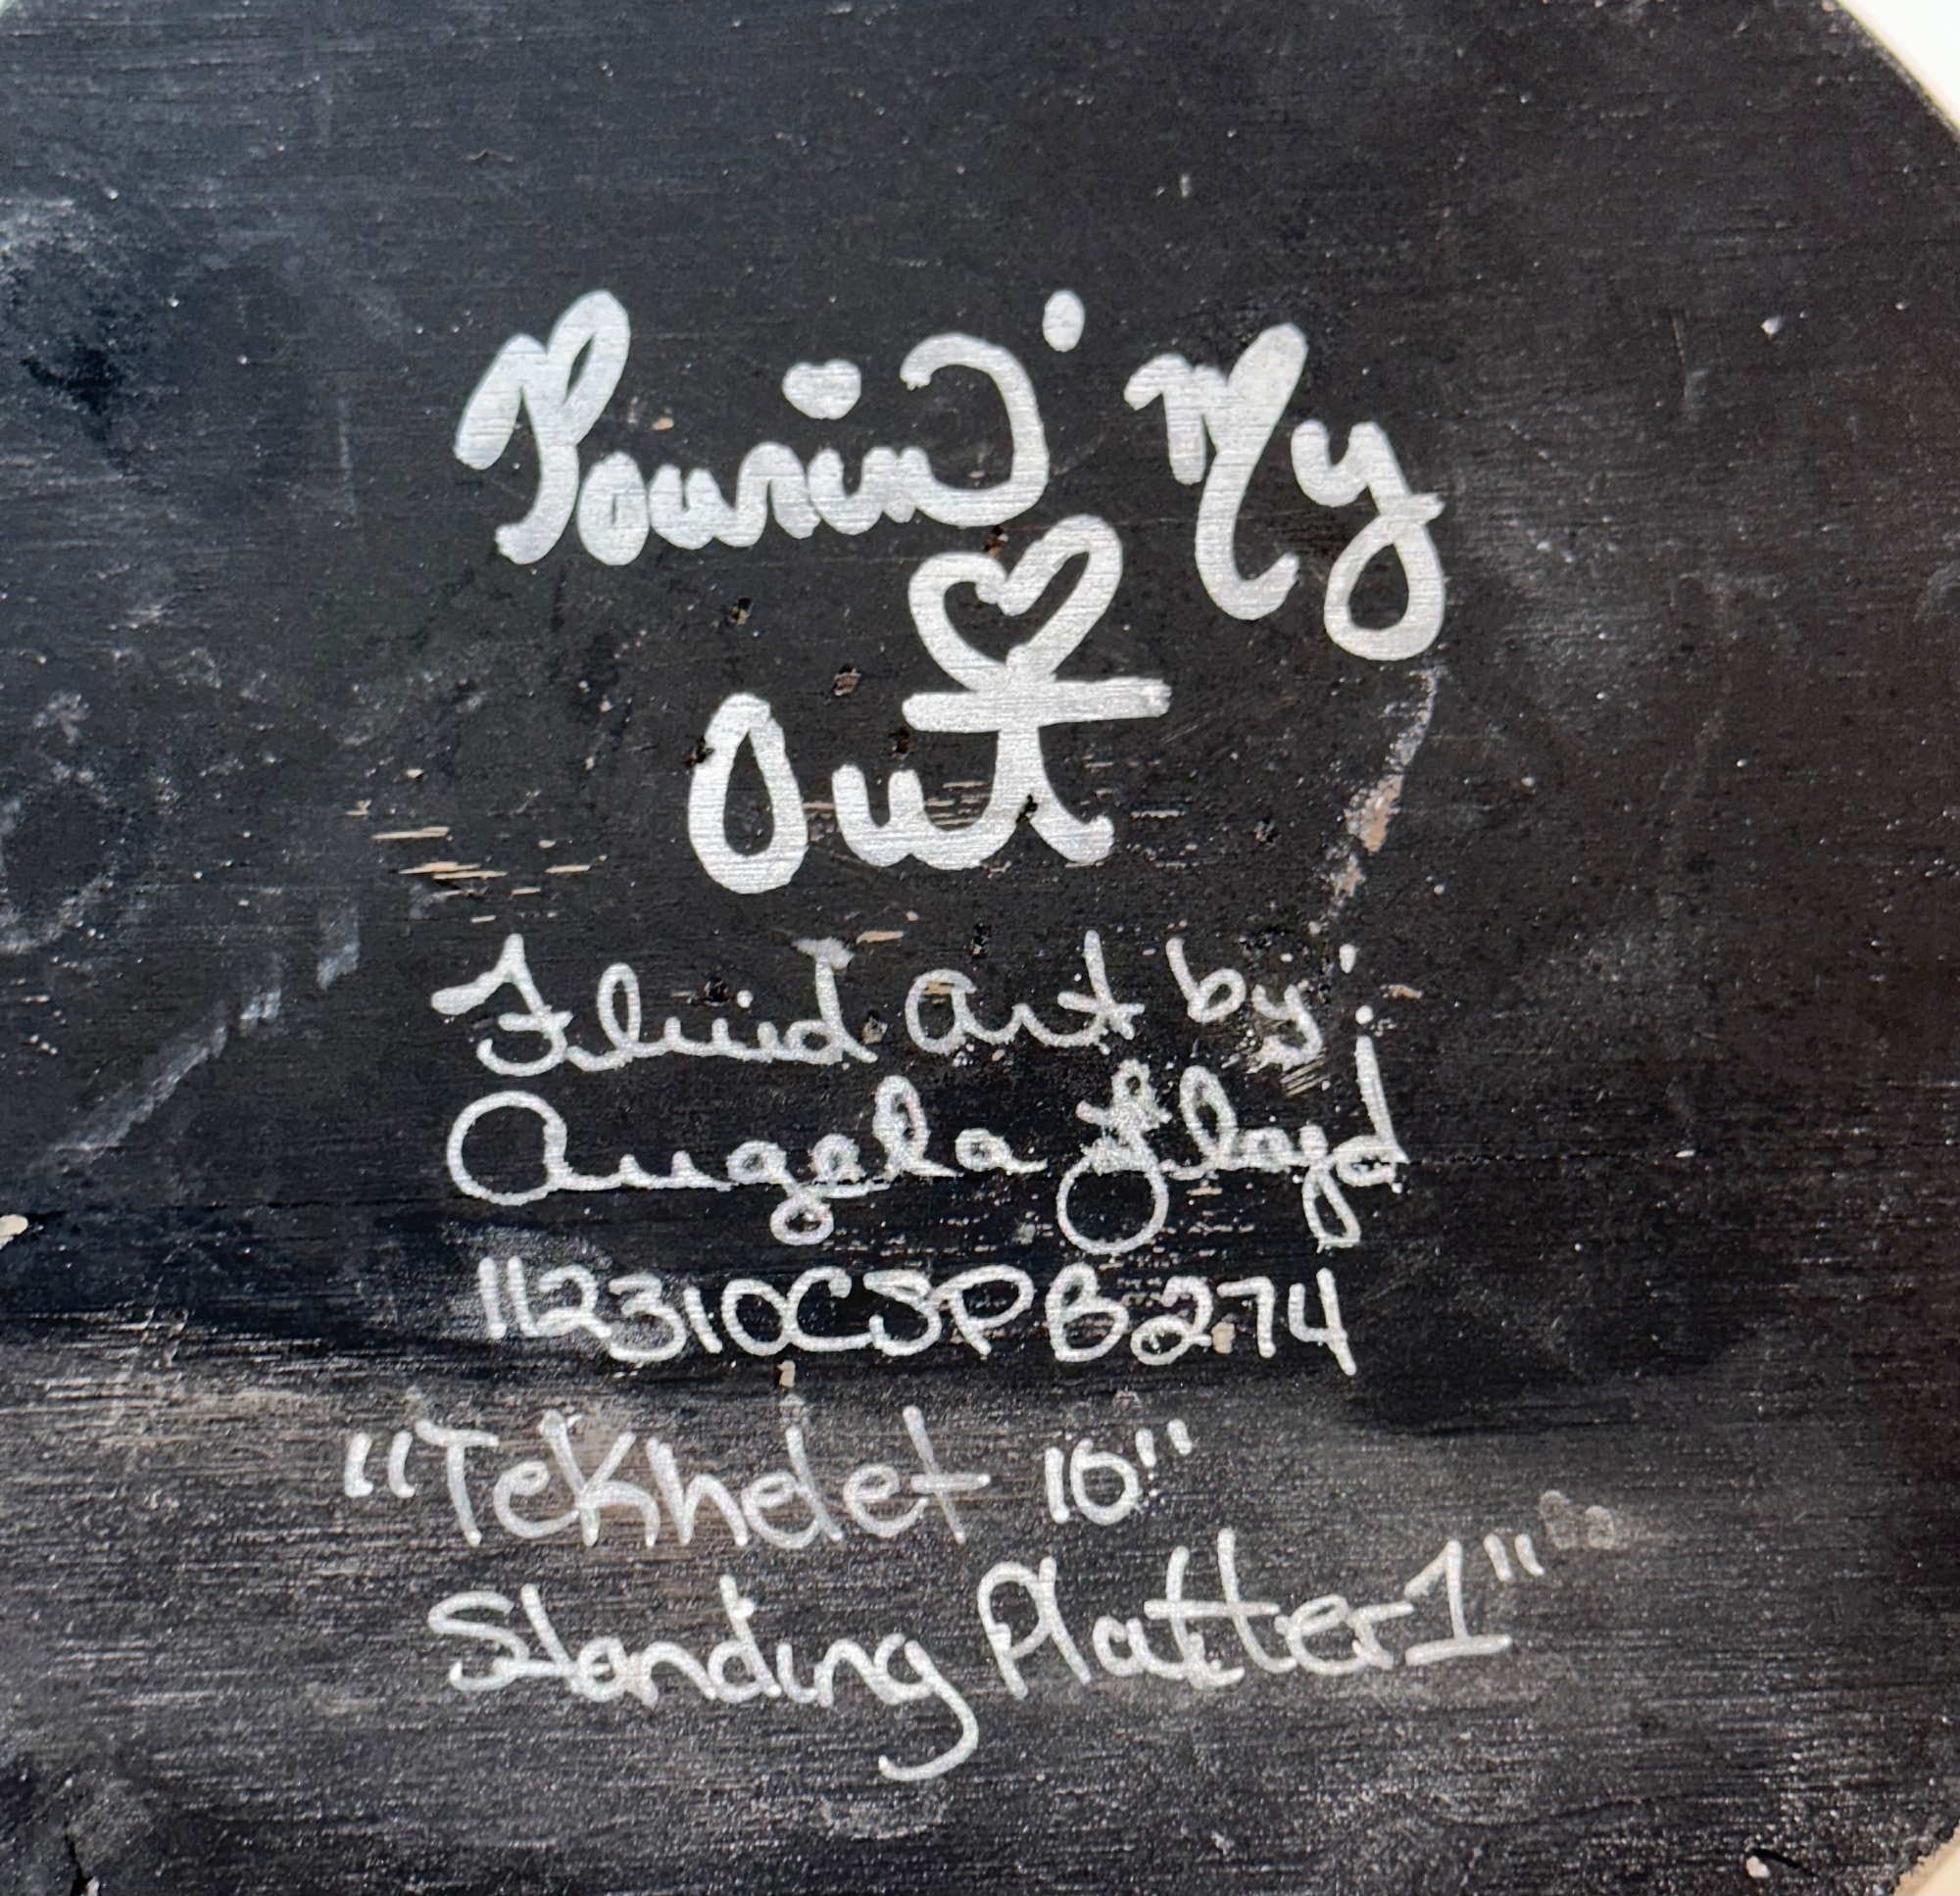 Pourin' My
♡
Out
Fluid Art by:
Angela Floyd
112310CSPB274
"Tekhelet 16"
Standing Platter 1"